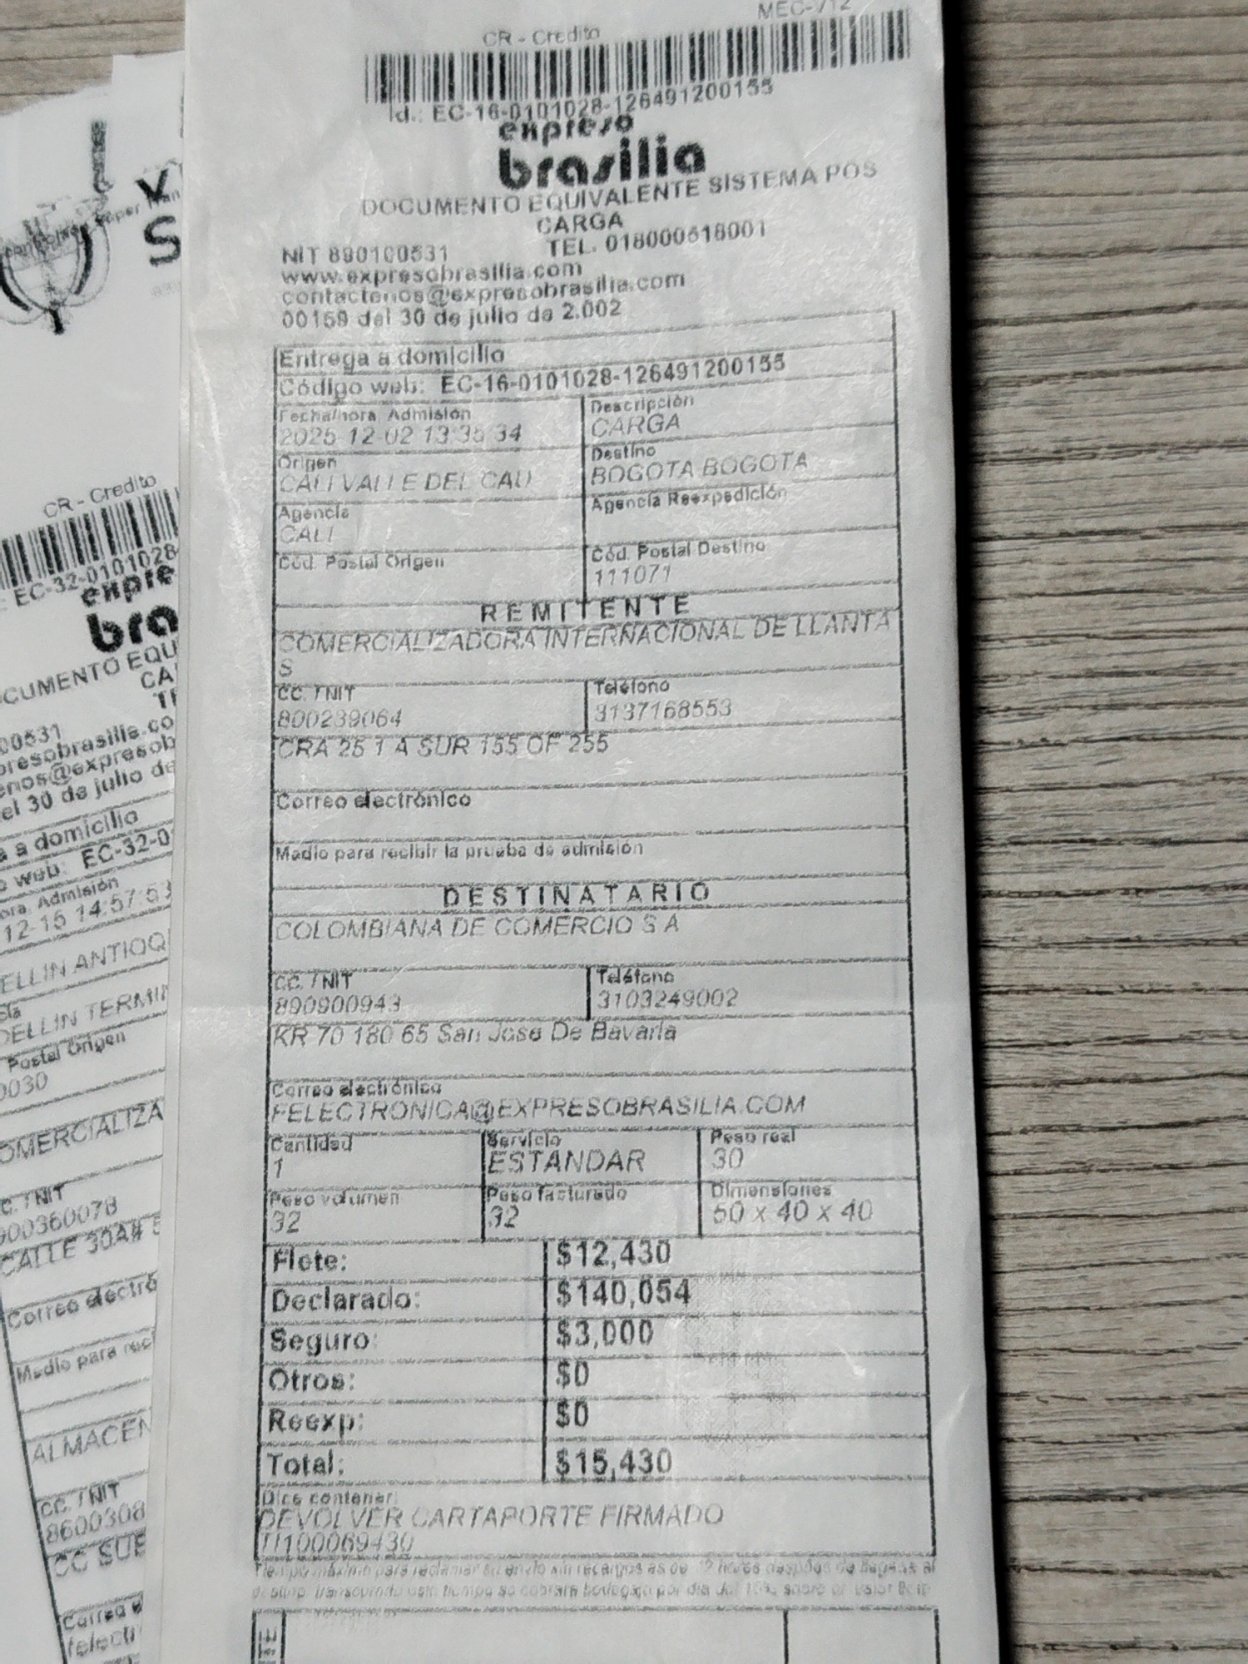 CR - Credito
MEC-V12
Id.: EC-16-0101028-126491200155
expreso
brasilia
DOCUMENTO EQUIVALENTE SISTEMA POS
CARGA
NIT 890100531 TEL. 018000518001
www.expresobrasilia.com
contactenos@expresobrasilia.com
00159 del 30 de julio de 2.002
Entrega a domicilio
Código web: EC-16-0101028-126491200155
Fecha/hora Admisión Descripción
2025-12-02 13:35:34 CARGA
Origen Destino
CALI VALLE DEL CAU BOGOTA BOGOTA
Agencia Agencia Reexpedición
CALI
Cód. Postal Origen Cód. Postal Destino
111071
REMITENTE
COMERCIALIZADORA INTERNACIONAL DE LLANTA
S
CC. / NIT Teléfono
800239064 3137168553
CRA 25 1 A SUR 155 OF 255
Correo electrónico
Medio para recibir la prueba de admisión
DESTINATARIO
COLOMBIANA DE COMERCIO S A
CC. / NIT Teléfono
890900943 3103249002
KR 70 180 65 San Jose De Bavaria
Correo electrónico
FELECTRONICA@EXPRESOBRASILIA.COM
Cantidad Servicio Peso real
1 ESTANDAR 30
Peso volumen Peso facturado Dimensiones
32 32 50 x 40 x 40
Flete: $12,430
Declarado: $140,054
Seguro: $3,000
Otros: $0
Reexp: $0
Total: $15,430
Dice contener:
DEVOLVER CARTAPORTE FIRMADO
TI100069430
CR - Credito
EC-32-0101028-
expre
bra
CUMENTO EQU
CA
00531
presobrasilia.co
enos@expresob
el 30 de julio de
a domicilio
web: EC-32-0
ora Admisión
12-15 14:57:53
ELLIN ANTIOQ
DELLIN TERMIN
Postal Origen
0030
OMERCIALIZA
C. / NIT
900360078
CALLE 30A# 5
Correo electró
Medio para reci
ALMACEN
CC. / NIT
8600308
CC SUE
Correo e
felectr